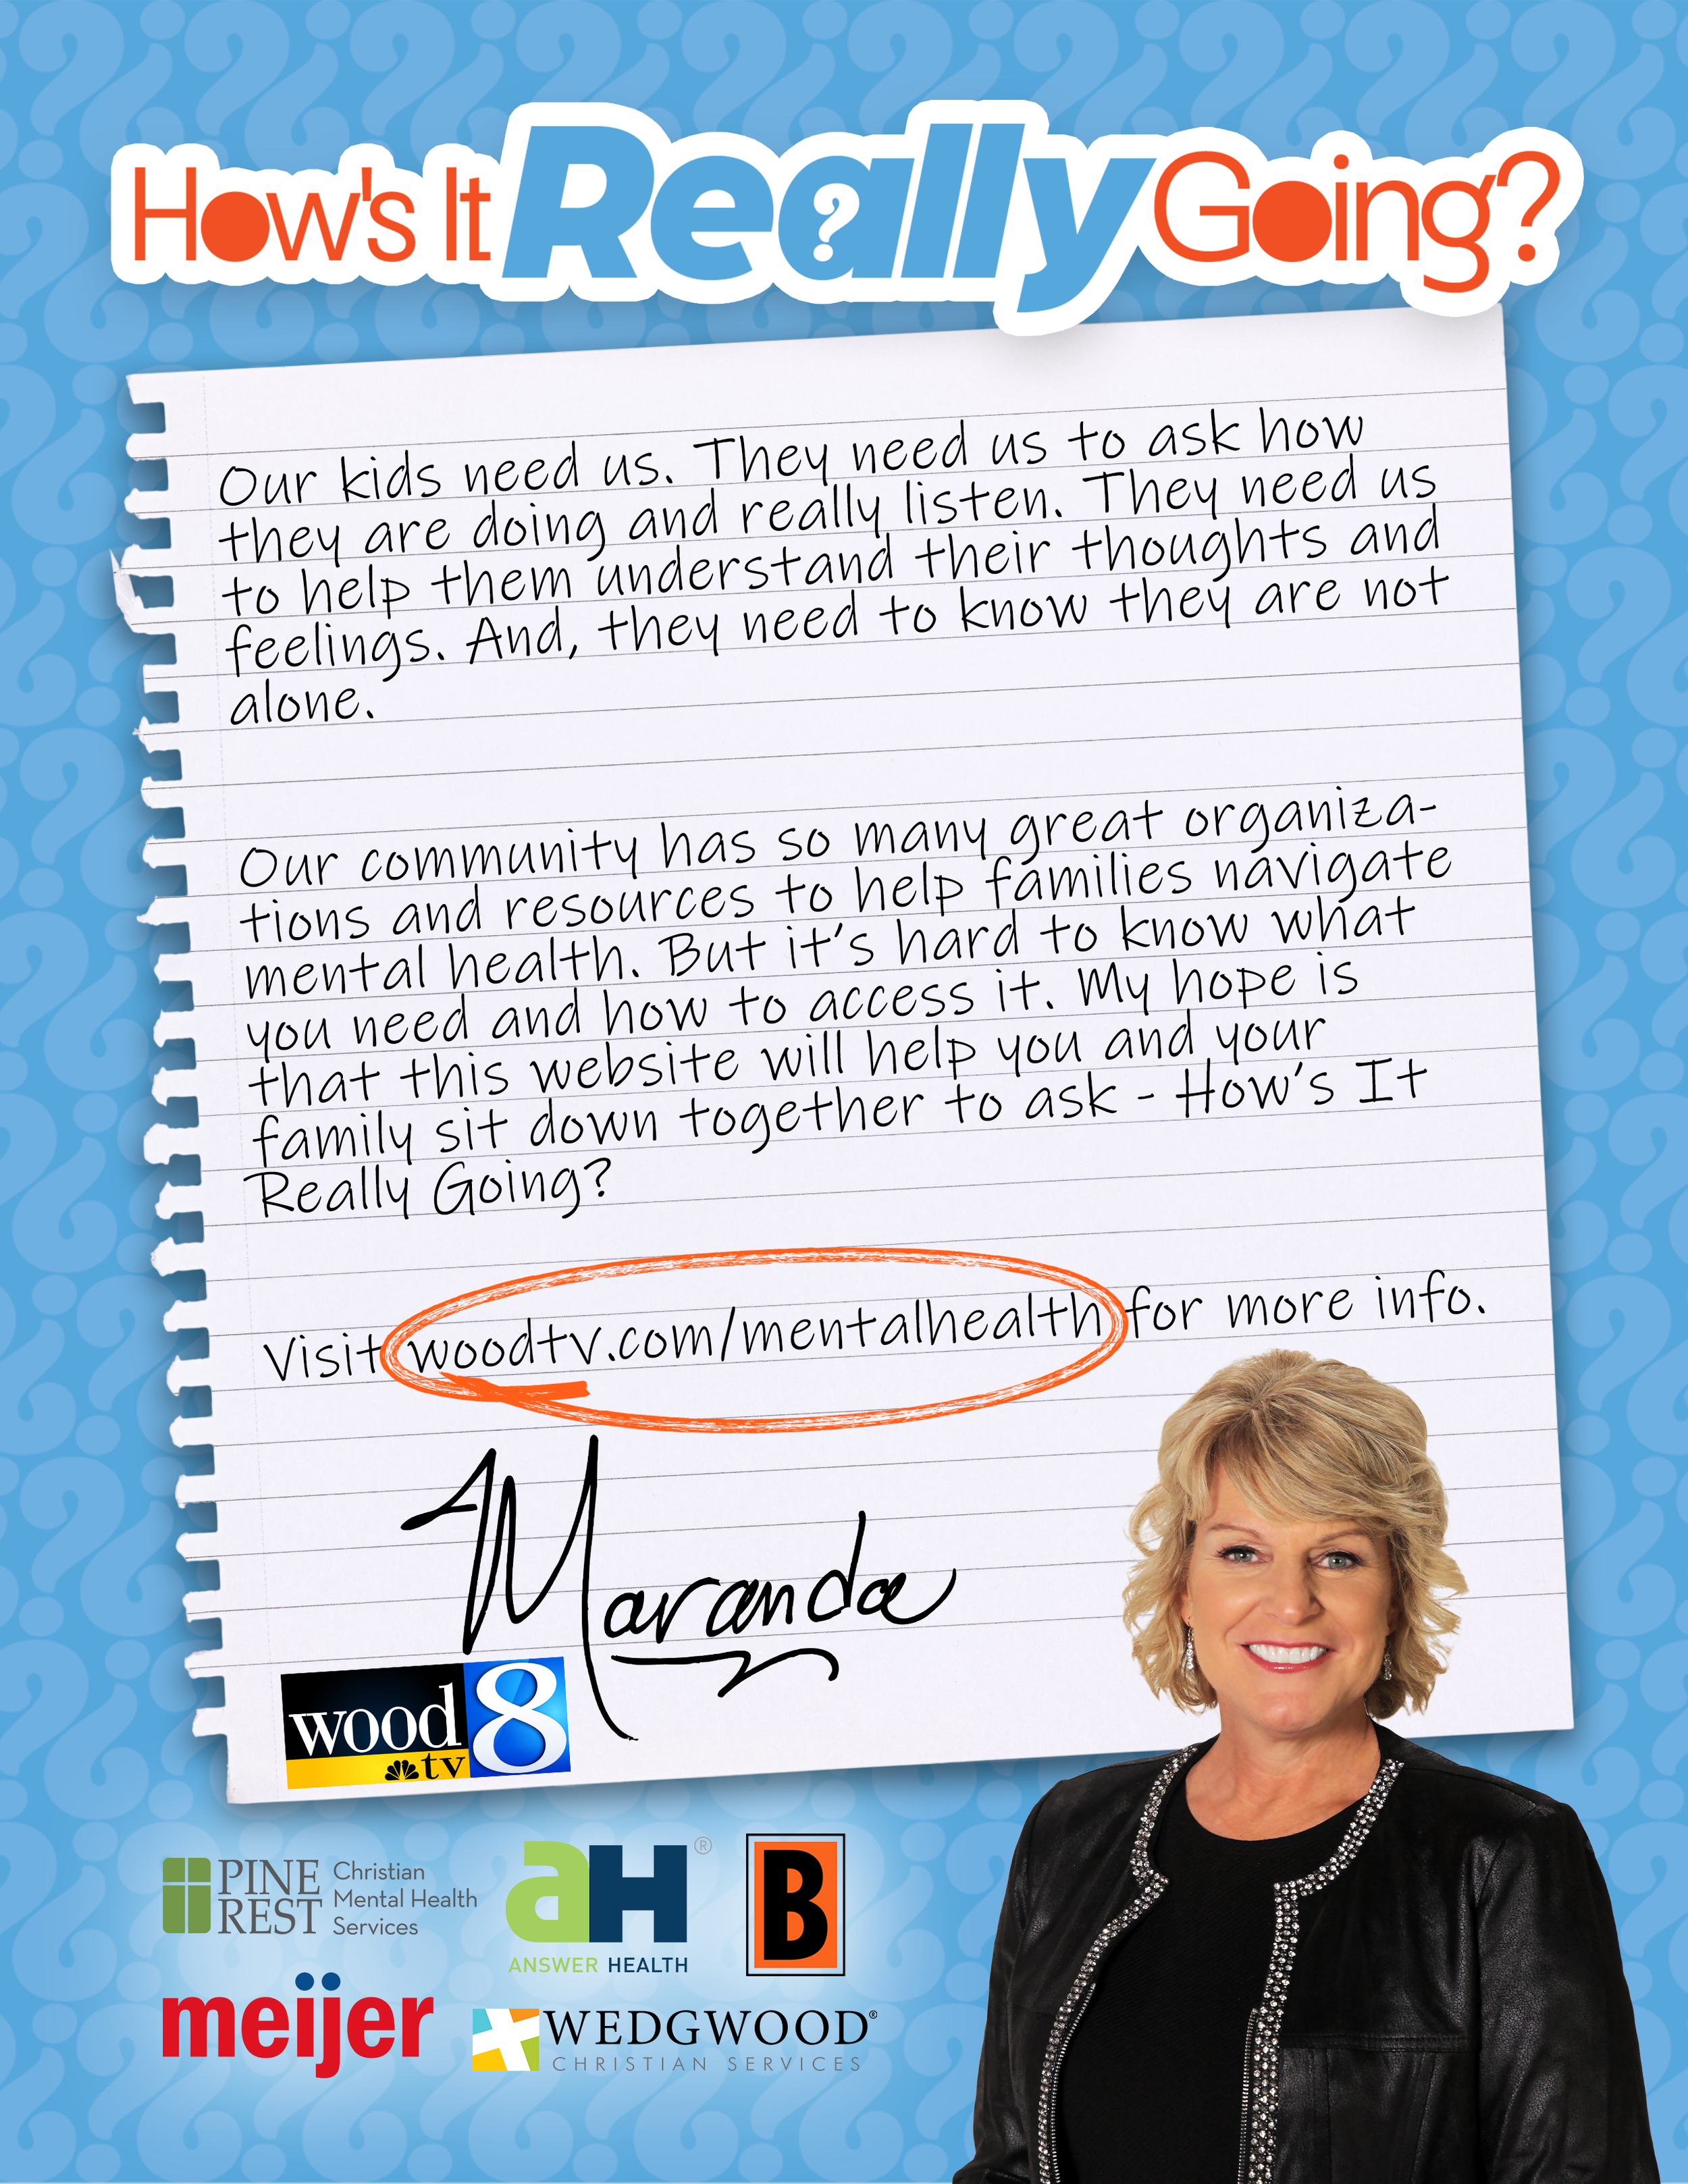 How's It Really Going?
Our kids need us. They need us to ask how
they are doing and really listen. They need us
to help them understand their thoughts and
feelings. And, they need to know they are not
alone.
Our community has so many great organiza-
tions and resources to help families navigate
mental health. But it's hard to know what
you need and how to access it. My hope is
that this website will help you and your
family sit down together to ask - How's It
Really Going?
Visit woodtv.com/mentalhealth for more info.
Maranda
wood
tv
8
PINE
REST
Christian
Mental Health
Services
aH®
ANSWER HEALTH
B
meijer
WEDGWOOD®
CHRISTIAN SERVICES